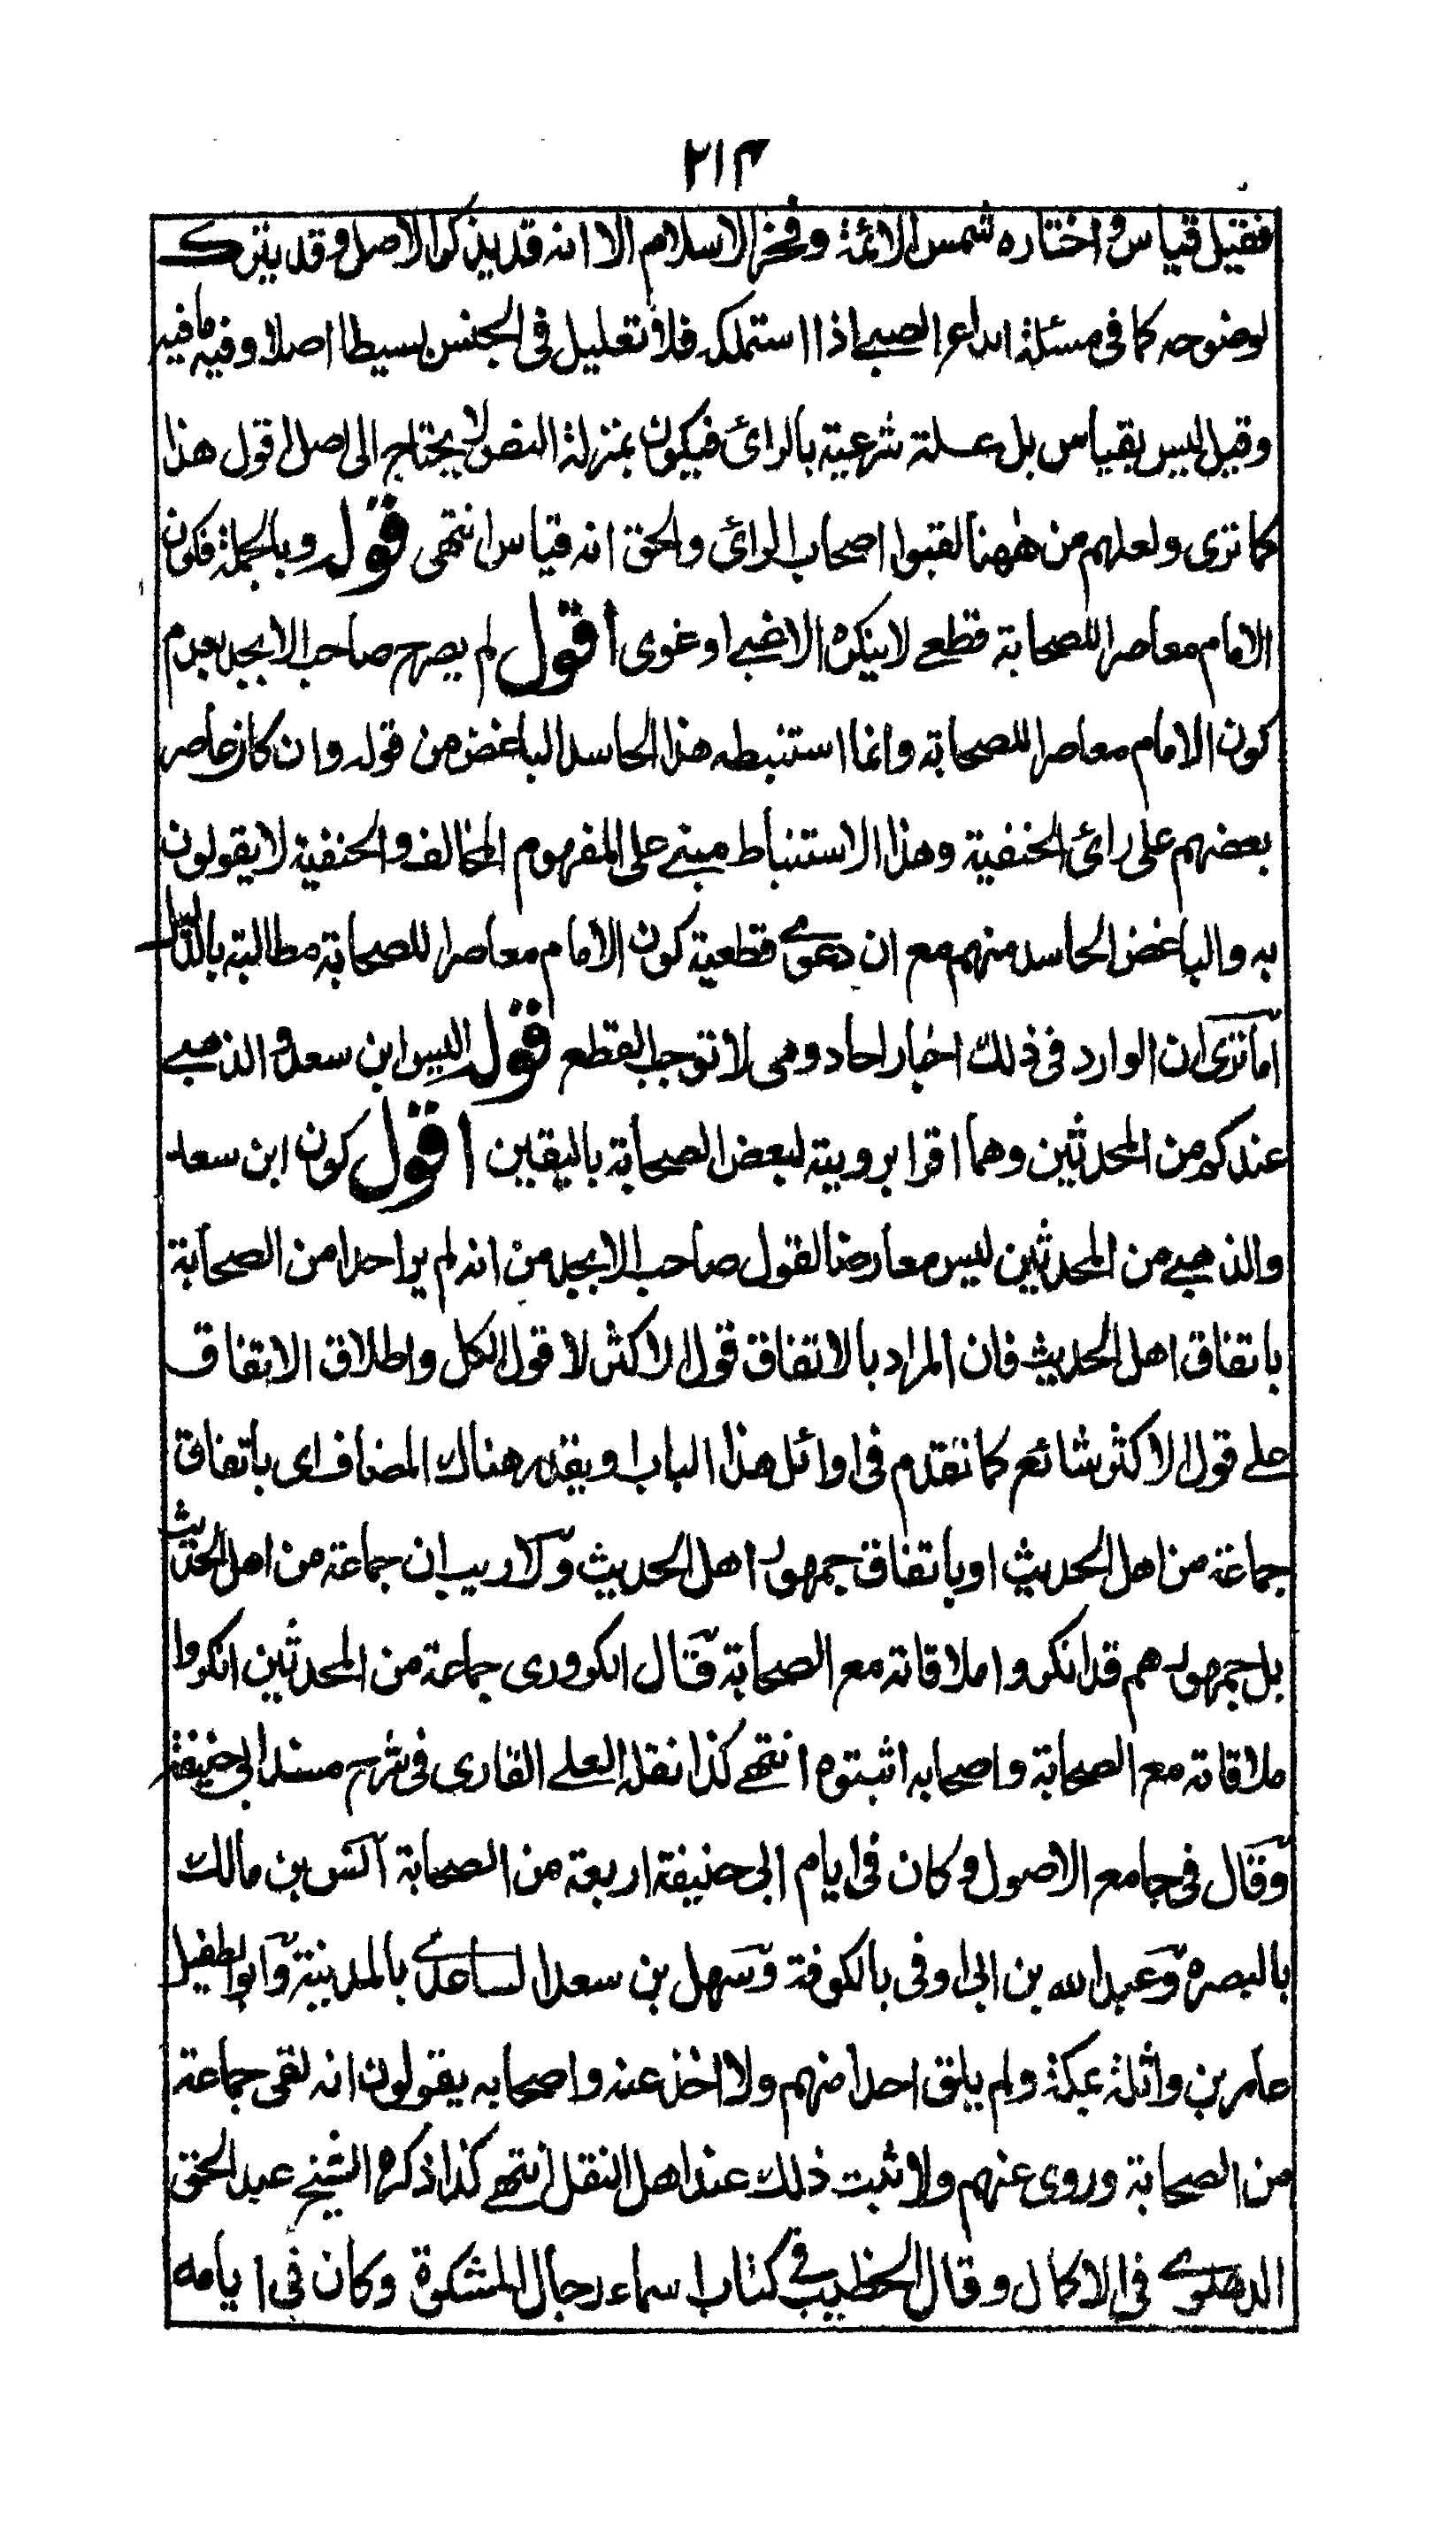 ٢١٣
فقيل قياس واختاره شمس الائمة وفخر الاسلام الا انه قد يذكر الاصل وقد يترك
لوضوحه كما فى مسئلة ايداع الصبي اذا استهلكه فلا تعليل فى الجنس بسيطا اصلا وفيه ما فيه
وقيل ليس بقياس بل علة شرعية بالرائ فيكون بمنزلة النص لا يحتاج الى اصل اقول هذا
كما ترى ولعلهم من ههنا لقبوا اصحاب الرائ والحق انه قياس انتهى قوله وبالجملة فكون
الامام معاصرا للصحابة قطعي لا ينكره الا غبي او غوى اقول لم يصرح صاحب الابجد بعدم
كون الامام معاصرا للصحابة وانما استنبطه هذا الحاسد الباغض من قوله وان كان عاصر
بعضهم على رائ الحنفية وهذا الاستنباط مبني على المفهوم المخالف والحنفية لا يقولون
به والباغض الحاسد منهم مع ان دعوى قطعية كون الامام معاصرا للصحابة مطالبة بالدليل
اما ترى ان الوارد فى ذلك اخبار احاد وهى لا توجب القطع قوله اليس ابن سعد والذهبي
عندكم من المحدثين وهما اقرا برويته لبعض الصحابة باليقين اقول كون ابن سعد
والذهبي من المحدثين ليس معارضا لقول صاحب الابجد من انه لم ير احدا من الصحابة
باتفاق اهل الحديث فان المراد بالاتفاق قول الاكثر لا قول الكل واطلاق الاتفاق
على قول الاكثر شائع كما تقدم فى اوائل هذا الباب او يقدر هناك المضاف اى باتفاق
جماعة من اهل الحديث او باتفاق جمهور اهل الحديث ولا ريب ان جماعة من اهل الحديث
بل جمهورهم قد انكروا ملاقاته مع الصحابة قال الكرورى جماعة من المحدثين انكروا
ملاقاته مع الصحابة واصحابه اثبتوه انتهى كذا نقله العلي القارى فى شرح مسند ابى حنيفة
وقال فى جامع الاصول وكان فى ايام ابى حنيفة اربعة من الصحابة انس بن مالك
بالبصره وعبد الله بن ابى اوفى بالكوفة وسهل بن سعد الساعدي بالمدينة وابو الطفيل
عامر بن واثلة بمكة ولم يلق احدا منهم ولا اخذ عنه واصحابه يقولون انه لقى جماعة
من الصحابة وروى عنهم ولا ثبت ذلك عند اهل النقل انتهى كذا ذكره الشيخ عبد الحق
الدهلوي فى الاكمال وقال الخطيب في كتاب اسماء رجال المشكوة وكان فى ايامه